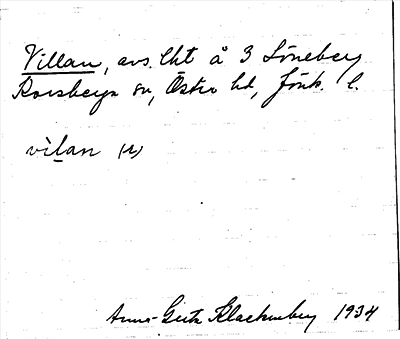 Villan, avs. lht å 3 Löneberg
Korsberga sn, Östra hd, Jönk. l.
vìlan (A)
Anna-Greta Klackenberg 1934